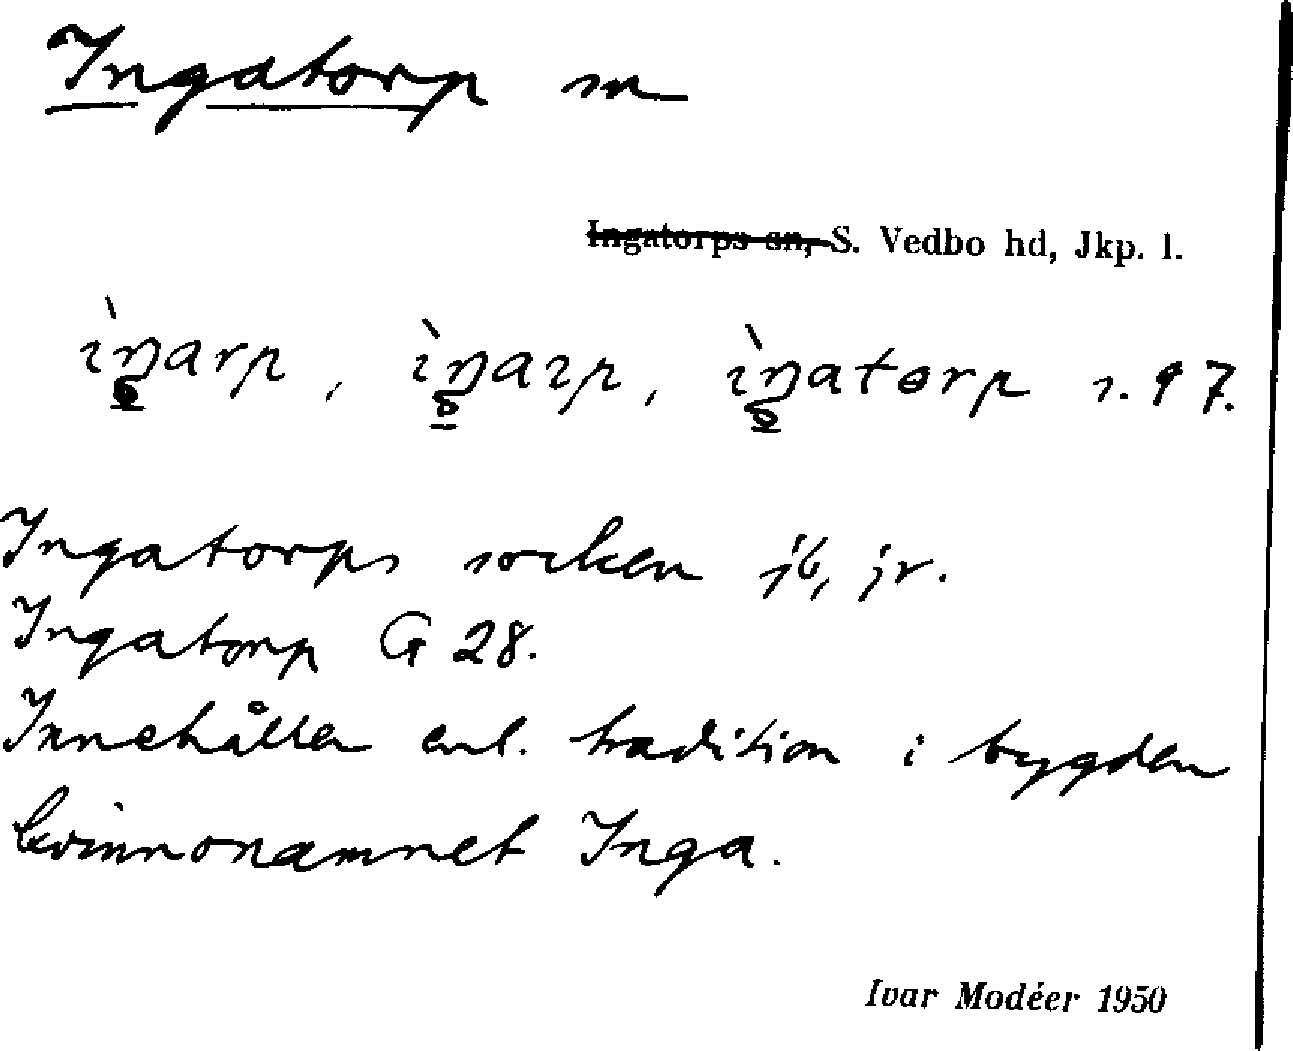 Ingatorp sn
Ingatorps sn, S. Vedbo hd, Jkp. l.
ìŋarp, ìŋaɿp, ìŋatorp s. 97.
Ingatorps socken jb, jr.
Ingatorp G 28.
Innehåller enl. tradition i bygden
kvinnonamnet Inga.
Ivar Modéer 1950